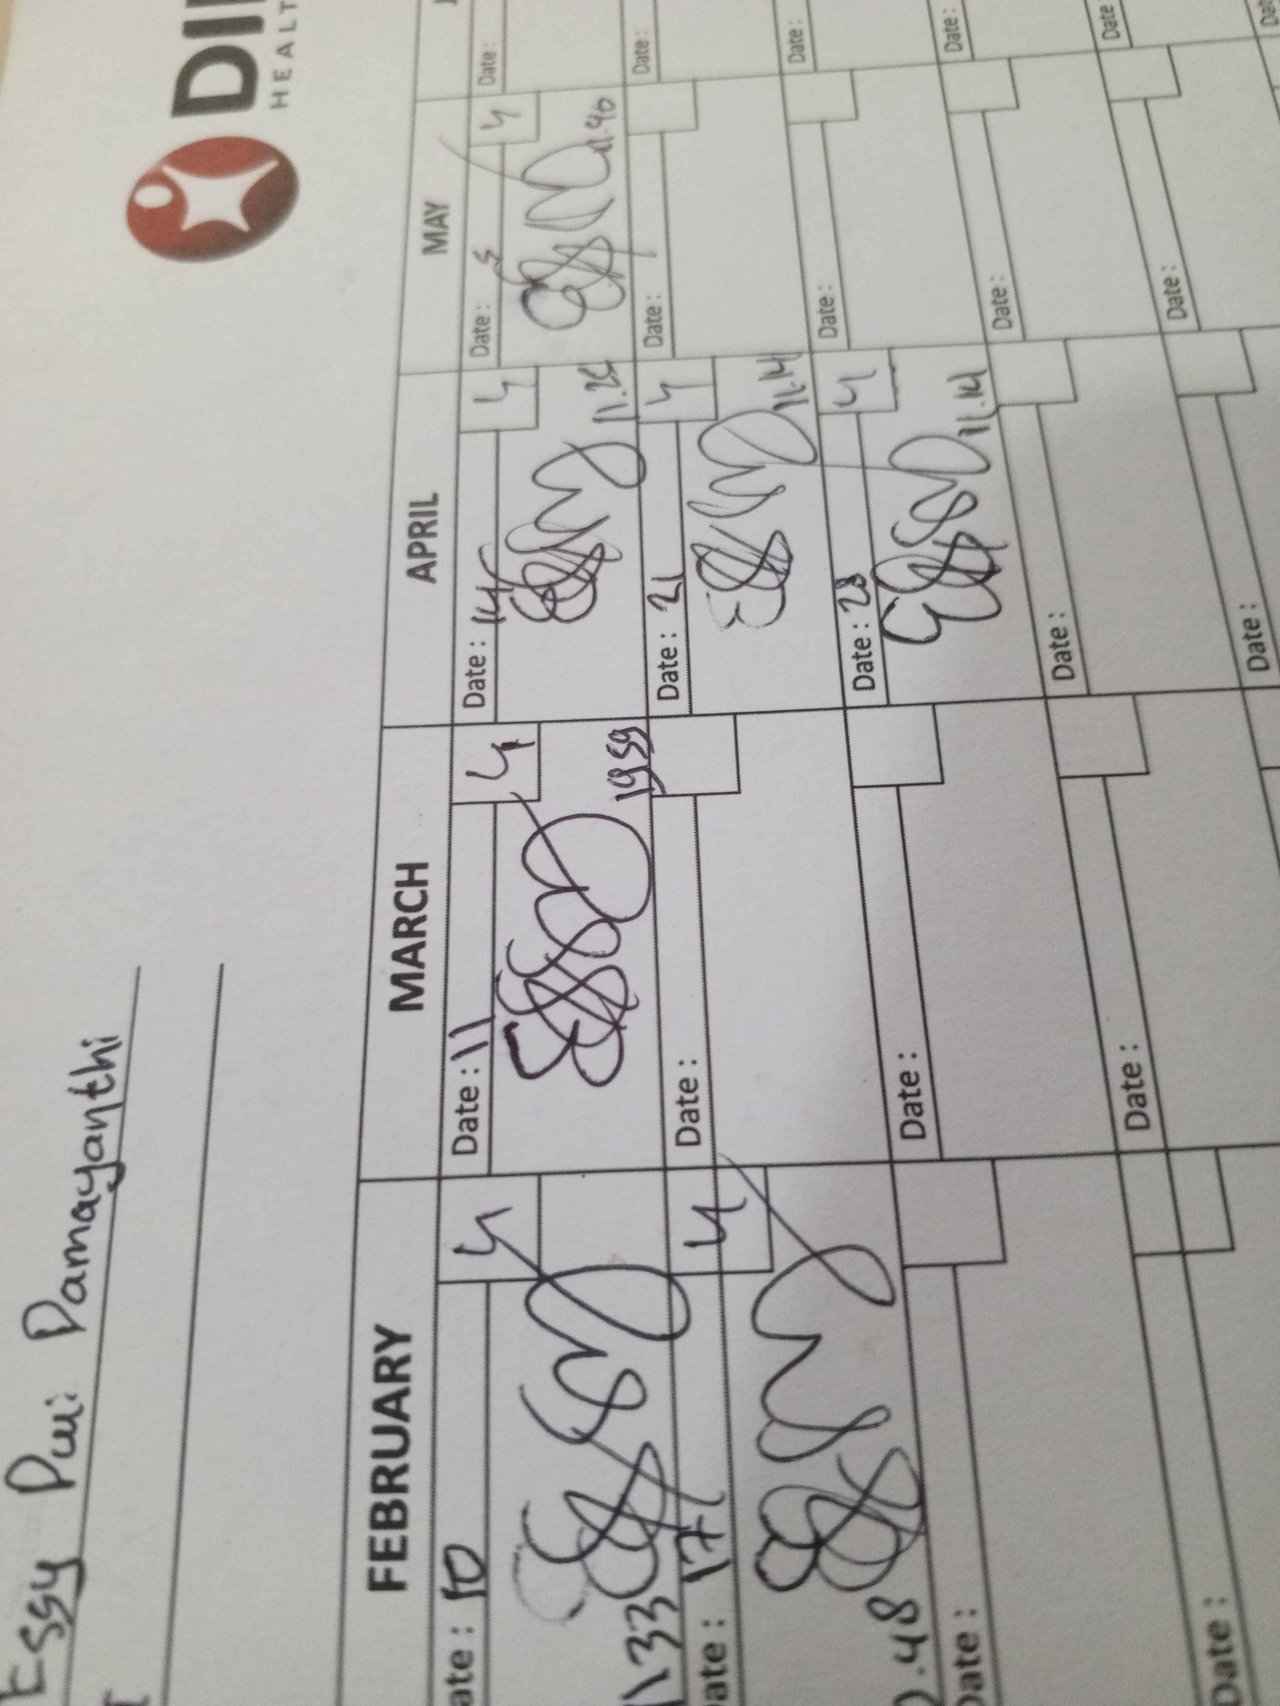 DI
HEALT
Essy Dwi Damayanthi
FEBRUARY MARCH APRIL MAY
ate : 10 4 Date : 11 4 Date : 14 4 Date : 5 4 Date :
11 33 1959 11.25 11.40
ate : 17 4 Date : Date : 21 4 Date : Date :
.48 11.14
Date : Date : Date : 28 4 Date : Date :
11.14
Date : Date : Date : Date : Date :
Date : Date : Date
Dat